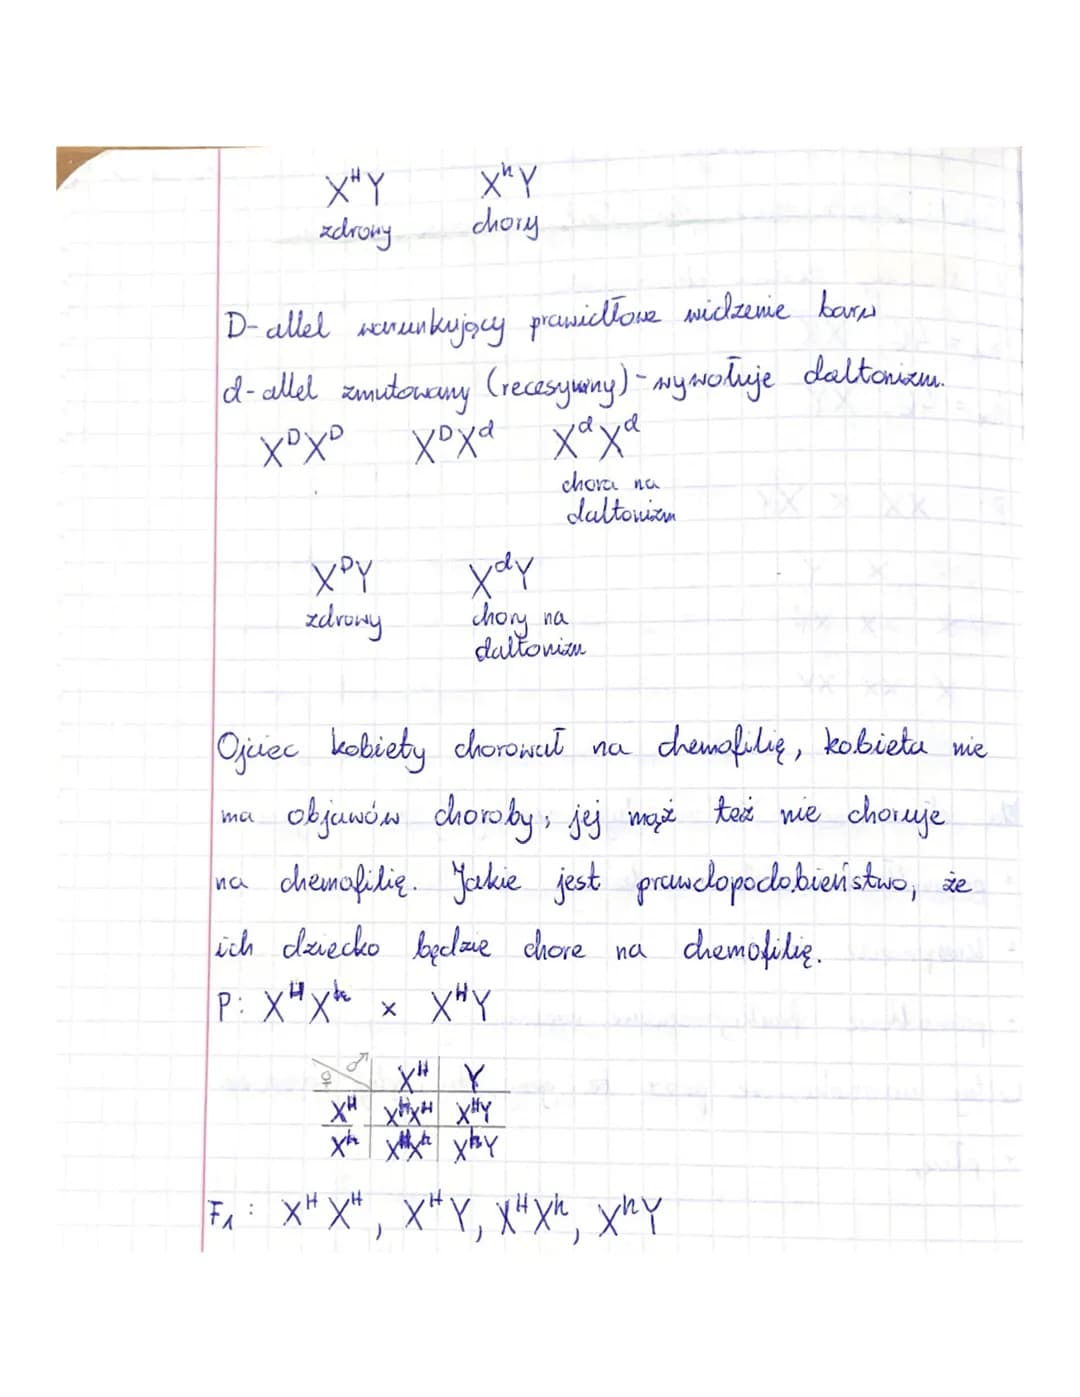 XᴴY XʰY
zdrowy chory
D-allel warunkujący prawidłowe widzenie barw
d-allel zmutowany (recesywny) - wywołuje daltonizm.
XᴰXᴰ XᴰXᵈ XᵈXᵈ
chora na
daltonizm
XᴰY XᵈY
zdrowy chory na
daltonizm
Ojciec kobiety chorował na chemofilię, kobieta nie
ma objawów choroby, jej mąż też nie choruje
na chemofilię. Jakie jest prawdopodobieństwo, że
ich dziecko będzie chore na chemofilię.
P: XᴴXʰ x XᴴY
♀ ♂ Xᴴ Y
Xᴴ XᴴXᴴ XᴴY
Xʰ XᴴXʰ XʰY
F₁: XᴴXᴴ, XᴴY, XᴴXʰ, XʰY